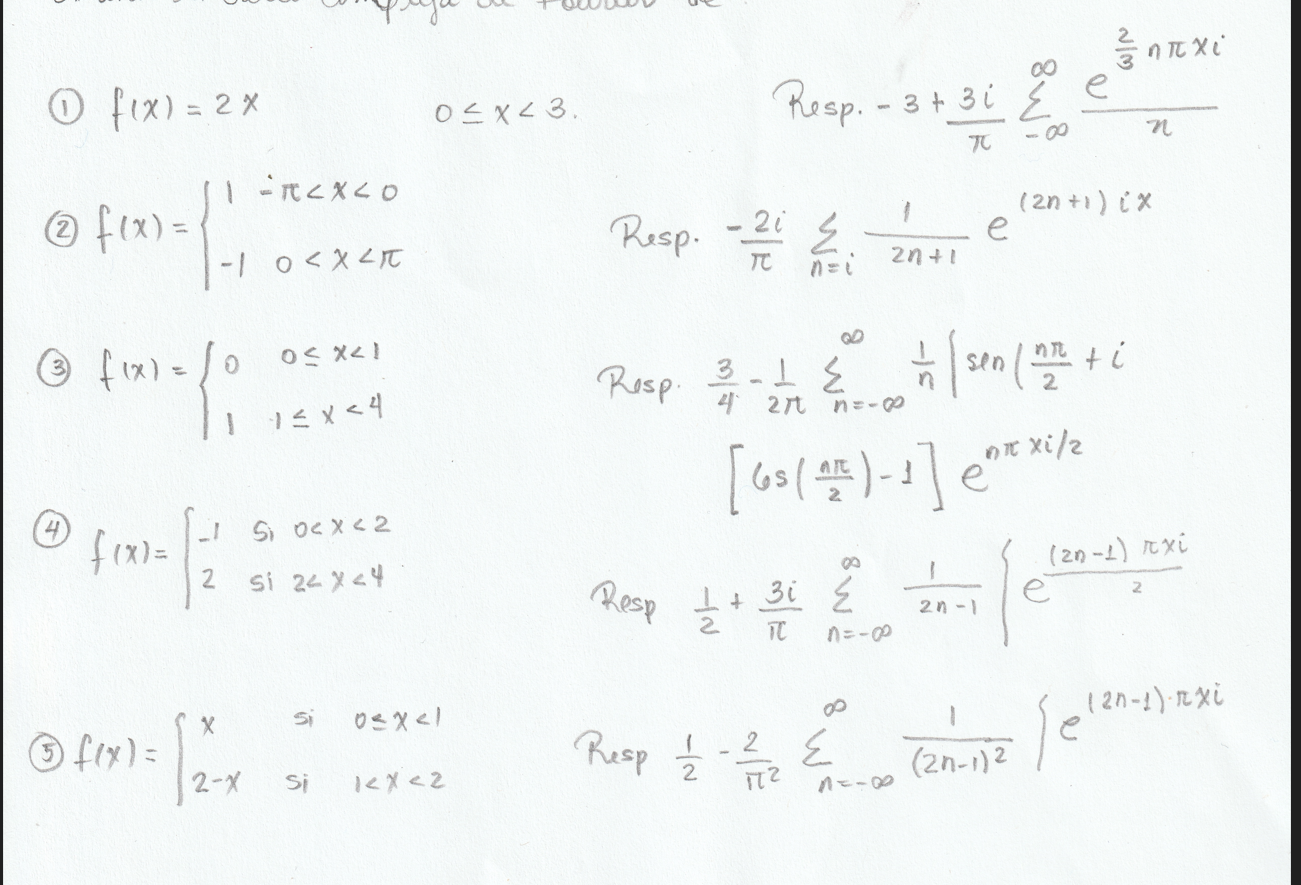 compleja de Fourier de
① f(x) = 2x 0 ≤ x < 3. Resp. - 3 + 3i/π ∑_{-∞}^{∞} e^{2/3 nπxi}/n
② f(x) = { 1 -π < x < 0
-1 0 < x < π
Resp. -2i/π ∑_{n=i} 1/(2n+1) e^{(2n+1) ix}
③ f(x) = { 0 0 ≤ x < 1
1 1 ≤ x < 4
Resp. 3/4 - 1/2π ∑_{n=-∞}^{∞} 1/n | sen ( nπ/2 + i
[ Cos ( nπ/2 ) - 1 ] e^{nπxi/2}
④ f(x) = { -1 si 0 < x < 2
2 si 2 < x < 4
Resp 1/2 + 3i/π ∑_{n=-∞}^{∞} 1/(2n-1) { e^{(2n-1) πxi/2}
⑤ f(x) = { x si 0 ≤ x < 1
2-x si 1 < x < 2
Resp 1/2 - 2/π² ∑_{n=-∞}^{∞} 1/(2n-1)² { e^{(2n-1)·πxi}